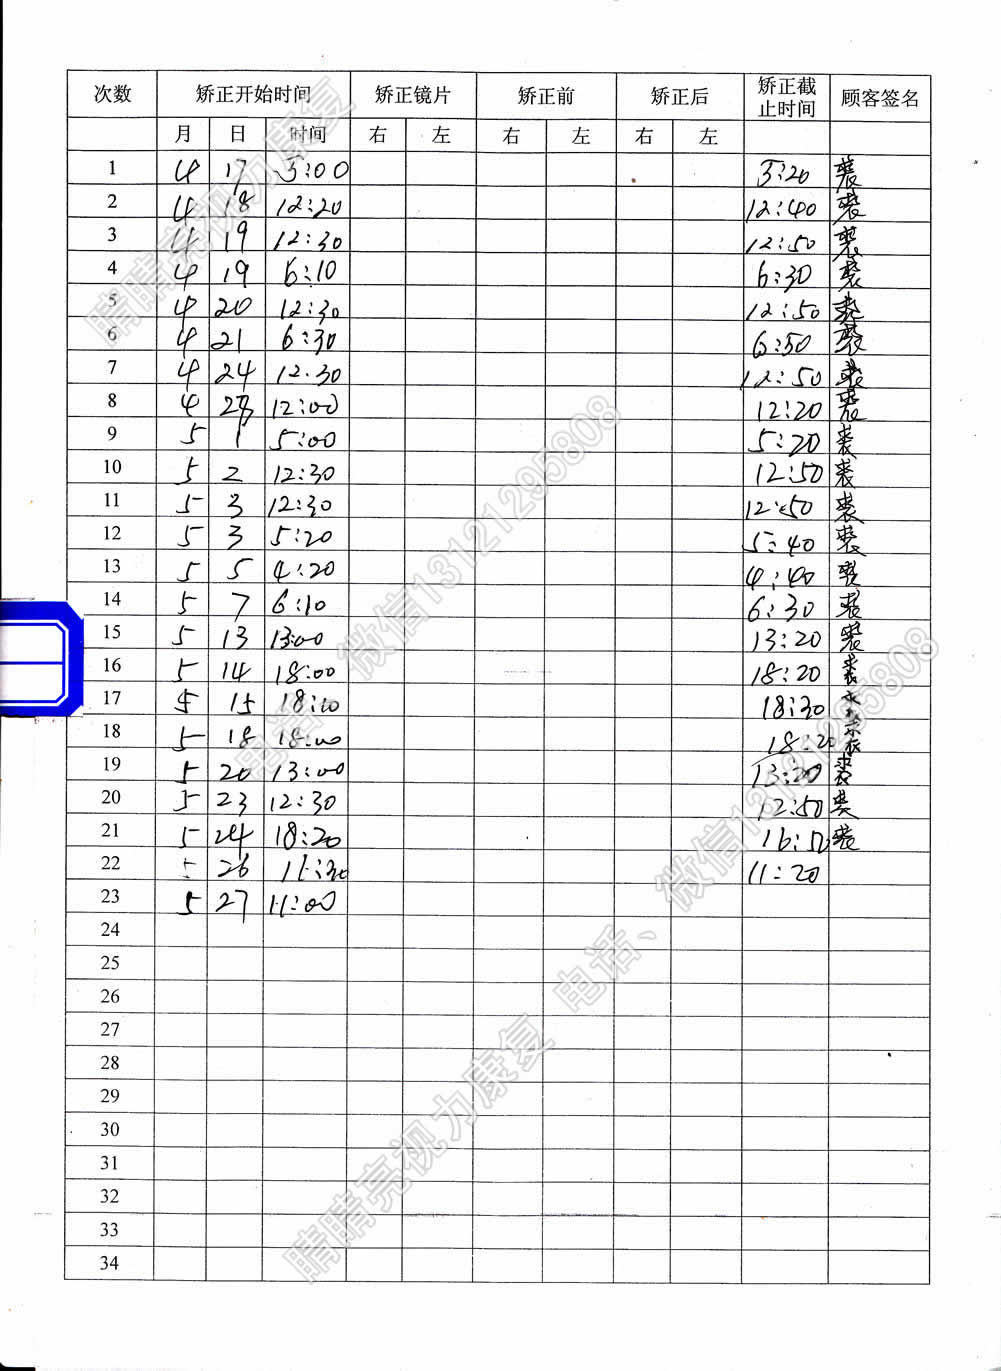 次数 矫正开始时间 矫正镜片 矫正前 矫正后 矫正截止时间 顾客签名
月 日 时间 右 左 右 左 右 左
1 4 17 5:00 5:20 裴
2 4 18 12:20 12:40 裴
3 4 19 12:30 12:50 裴
4 4 19 6:10 6:30 裴
5 4 20 12:30 12:50 裴
6 4 21 6:30 6:50 裴
7 4 24 12:30 12:50 裴
8 4 12:00 12:20 裴
9 5 1 5:00 5:20 裴
10 5 2 12:30 12:50 裴
11 5 3 12:30 12:50 裴
12 5 3 5:20 5:40 裴
13 5 5 4:20 4:40 裴
14 5 7 6:10 6:30 裴
15 5 13 13:00 13:20 裴
16 5 14 18:00 18:20 裴
17 5 15 18:10 18:30
18 5 18 18:00 18:20
19 5 20 13:00 13:20 裴
20 5 23 12:30 12:50
21 5 24 18:20 16:50 裴
22 5 26 11:20
23 5 27 11:00
24
25
26
27
28
29
30
31
32
33
34
睛睛亮视力康复 电话、微信13121295808
睛睛亮视力康复 电话、微信13121295808